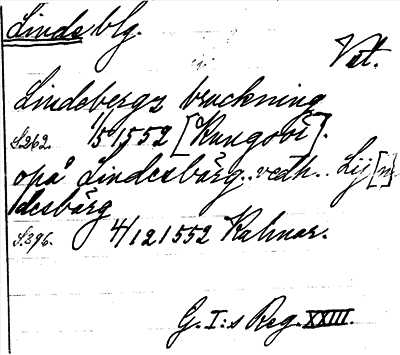 Linde blg.
Vst.
Lindebergz bruckning
S.262. 11/5 1552 [Kungsör].
opå Lindesbärg..vedh.. Lij[n]
desbärg
S.396. 4/12 1552 Kalmar.
G. I:s Reg. XXIII.